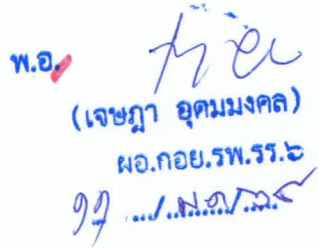 พ.อ.
(เจษฎา อุดมมงคล)
ผอ.กอย.รพ.รร.๖